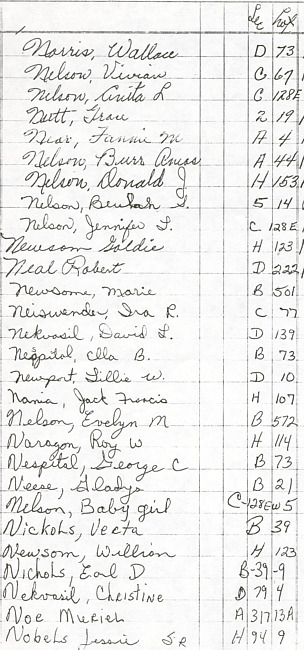 Sec Lot
Norris, Wallace D 73
Nelson, Vivian C 67
Nelson, Anita L C 128E
Nutt, Grau 2 19
Near, Fannie M A 4
Nelson, Burr Amos A 44
Nelson, Donald J H 153
Nelson, Beulah S. 5 14
Nelson, Jennifer T. C 128E
Newsom Goldie H 123
Neal Robert D 222
Newsome, Marie B 501
Neiswender, Ira R. C 77
Nekvasil, David L. D 139
Nespital, Ella B. B 73
Newport, Lillie W. D 10
Nania, Jack Francis H 107
Nelson, Evelyn M B 572
Naragon, Roy W H 114
Nespital, George C B 73
Neese, Gladys B 21
Nelson, Baby girl C-128EW 5
Nickols, Veeta B 39
Newsom, William H 123
Nichols, Earl D B-39-9
Nekvasil, Christine D 79 4
Noe Muriel A 317 13A
Nobels Jessie Sr H 94 9